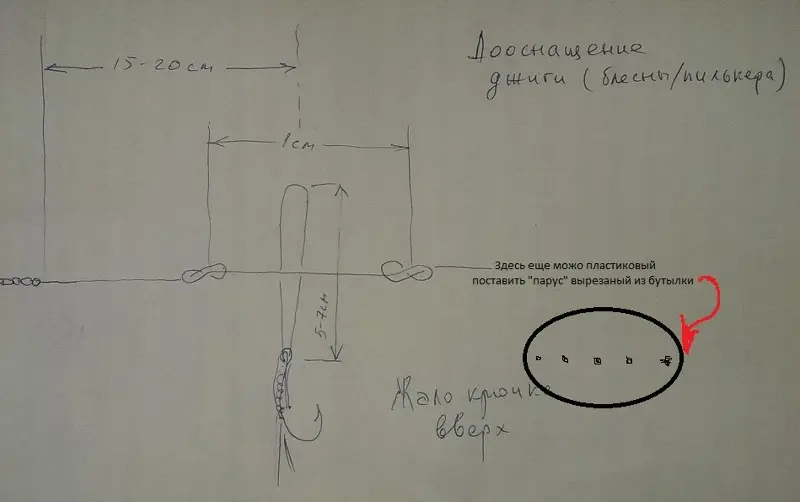 Дооснащение
джиги (блесны/пилькера)
15-20 см
1см
5-7см
Здесь еще можо пластиковый
поставить "парус" вырезаный из бутылки
Жало крючка
вверх